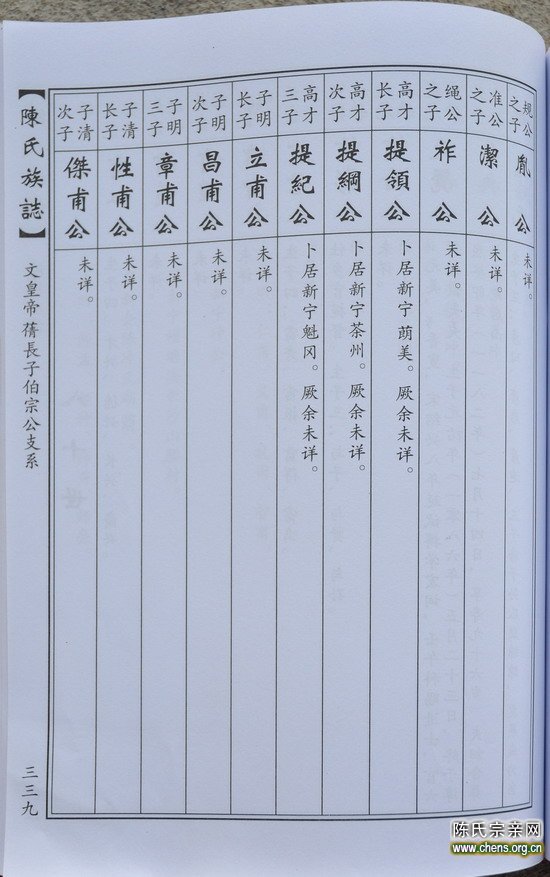 规公之子
胤公
未详。
准公之子
潔公
未详。
绳公之子
祚公
未详。
高才长子
提領公
卜居新宁萌美。厥余未详。
高才次子
提綱公
卜居新宁茶州。厥余未详。
高才三子
提紀公
卜居新宁魁冈。厥余未详。
子明长子
立甫公
未详。
子明次子
昌甫公
未详。
子明三子
章甫公
未详。
子清长子
性甫公
未详。
子清次子
傑甫公
未详。
【陳氏族誌】
文皇帝蒨長子伯宗公支系
三三九
陈氏宗亲网
www.chens.org.cn